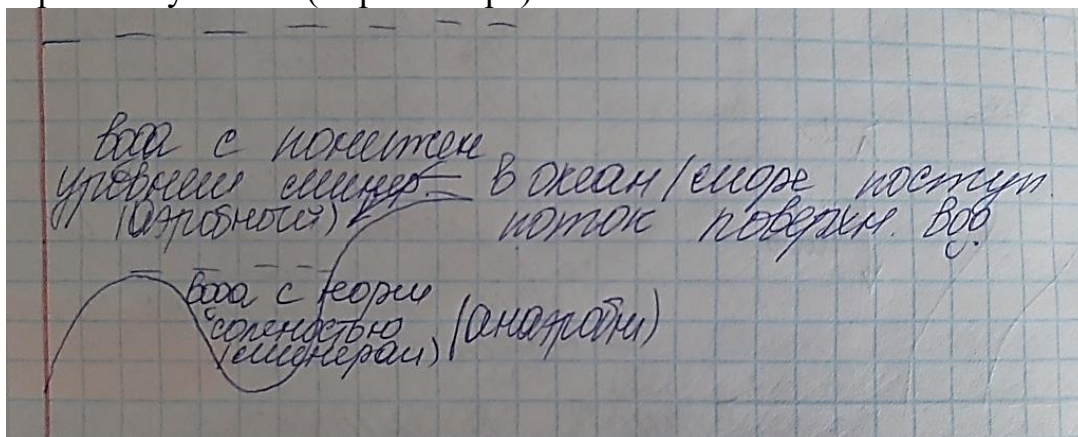 Вода с понижен
уровнем минер.
(аэробной)
В океан/море поступ.
поток поверхн. вод
Вода с норм
соленостью
(минерал)
(анаэробн)